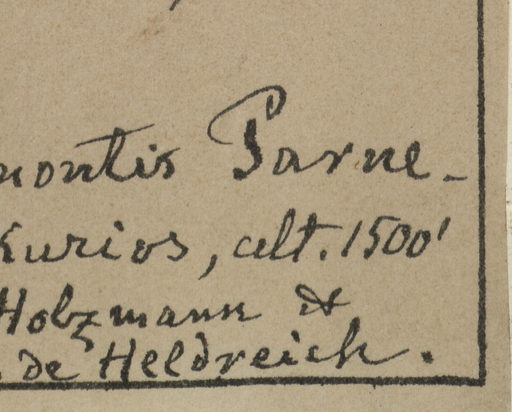 montis Parne-
Kurios, alt. 1500'
Holzmann &
. de Heldreich.